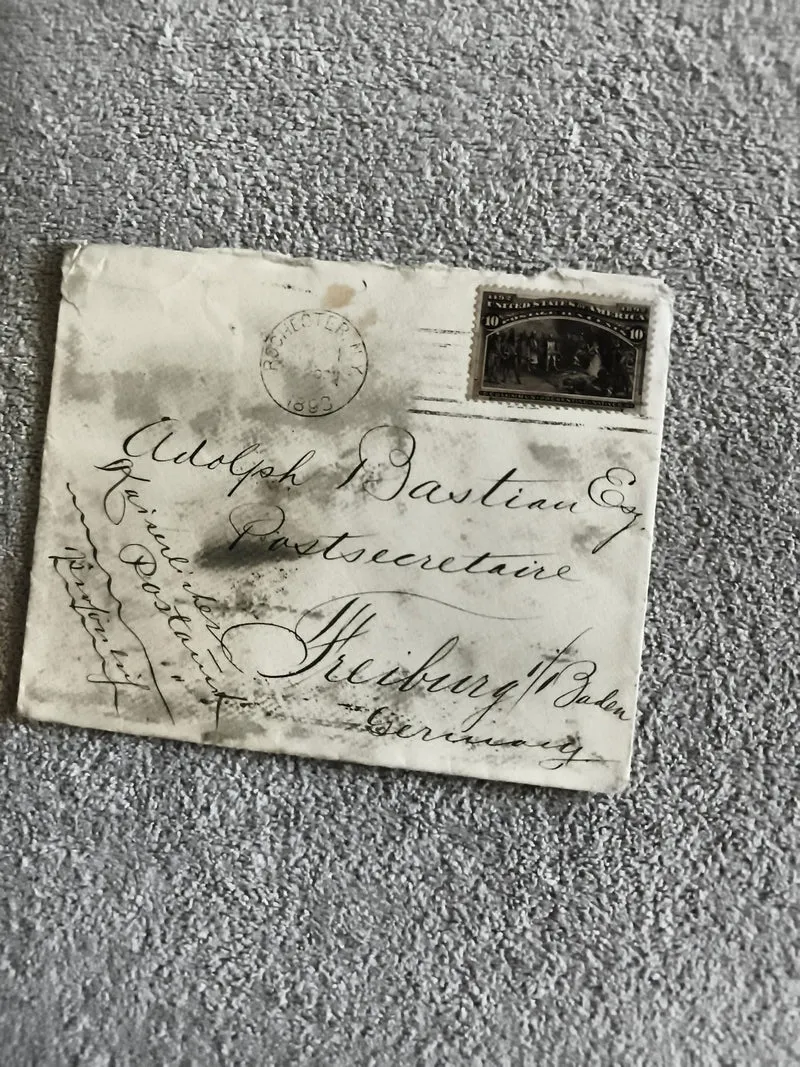 ROCHESTER, N.Y.
1893
1492 1892
UNITED STATES OF AMERICA
POSTAGE TEN CENTS
10 10
Adolph Bastian Esq.
Postsecretaire
Freiburg i/Baden
Germany
Postamt